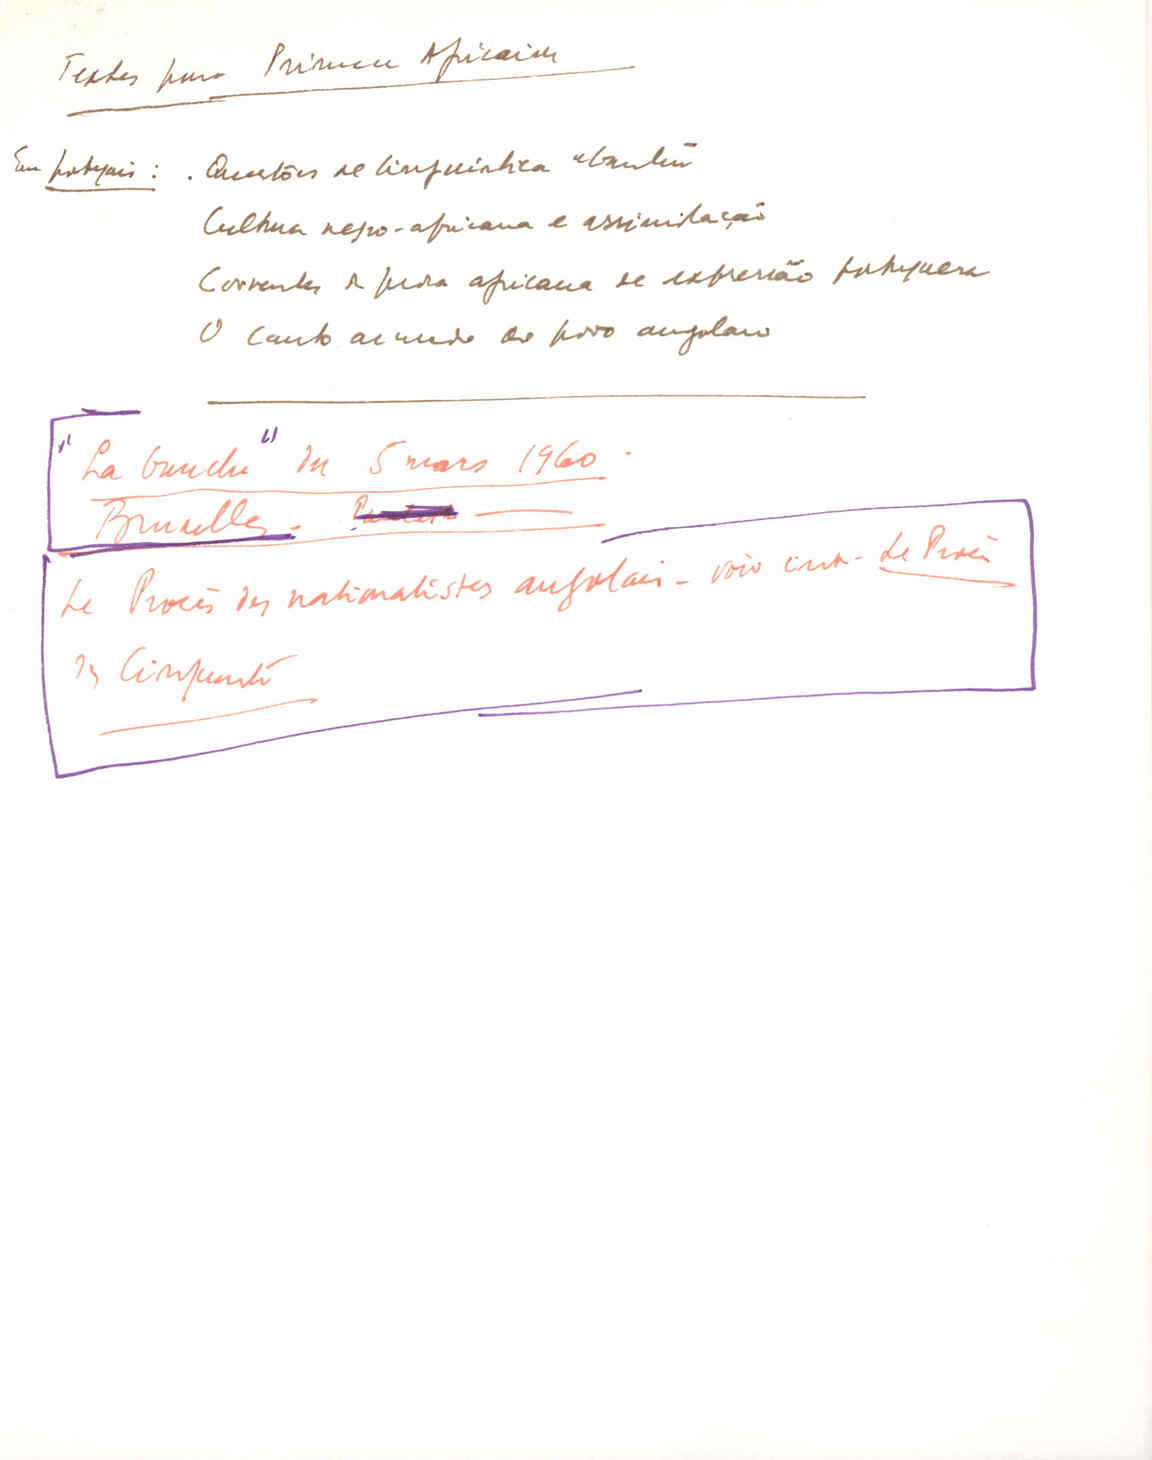 Textes para Présence Africaine
Em português : . Questões de linguística "bantu"
Cultura negro-africana e assimilação
Correntes da poesia africana de expressão portuguesa
O canto do povo angolano
"La Gauche" du 5 mars 1960.
Bruxelles -
Le Procès des nationalistes angolais - voir Le Procès
des Cinquante